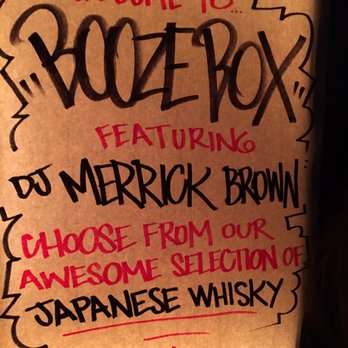 WELCOME TO...
"BOOZE BOX"
FEATURING
DJ MERRICK BROWN
CHOOSE FROM OUR
AWESOME SELECTION OF
JAPANESE WHISKY